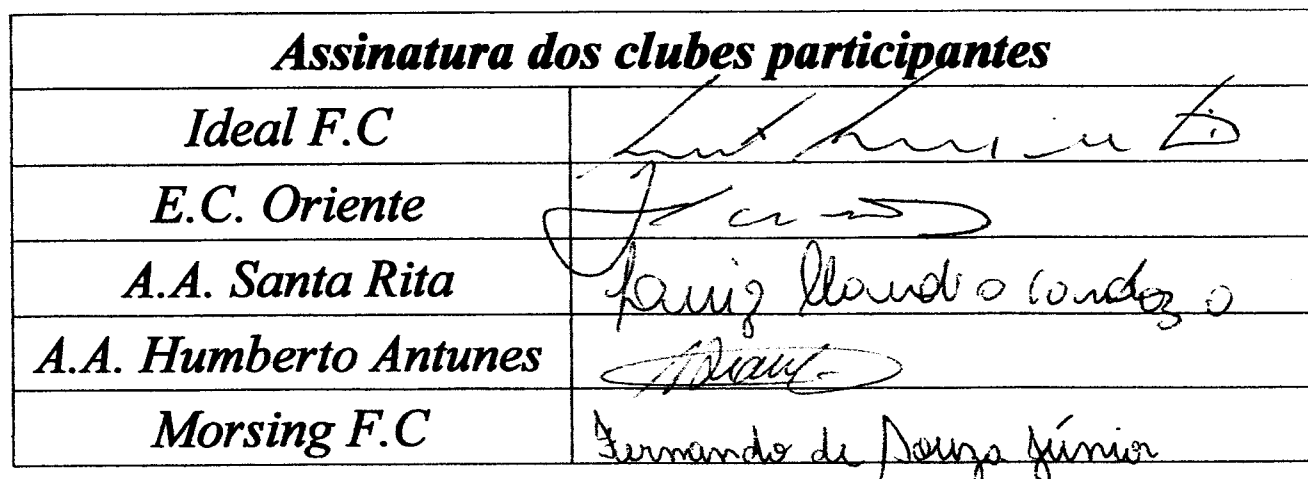 Assinatura dos clubes participantes
Ideal F.C
E.C. Oriente
A.A. Santa Rita Luiz Claudio Cardozo
A.A. Humberto Antunes
Morsing F.C Fernando de Souza Júnior